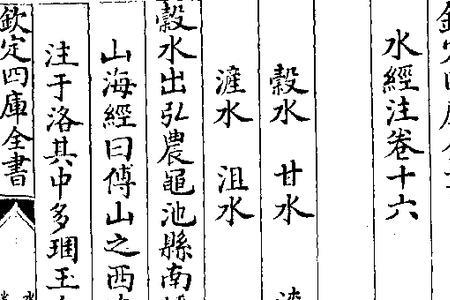 水經注卷十六
穀水　甘水
滻水　沮水
穀水出弘農黽池縣南
山海經曰傅山之西
注于洛其中多珚玉
欽定四庫全書